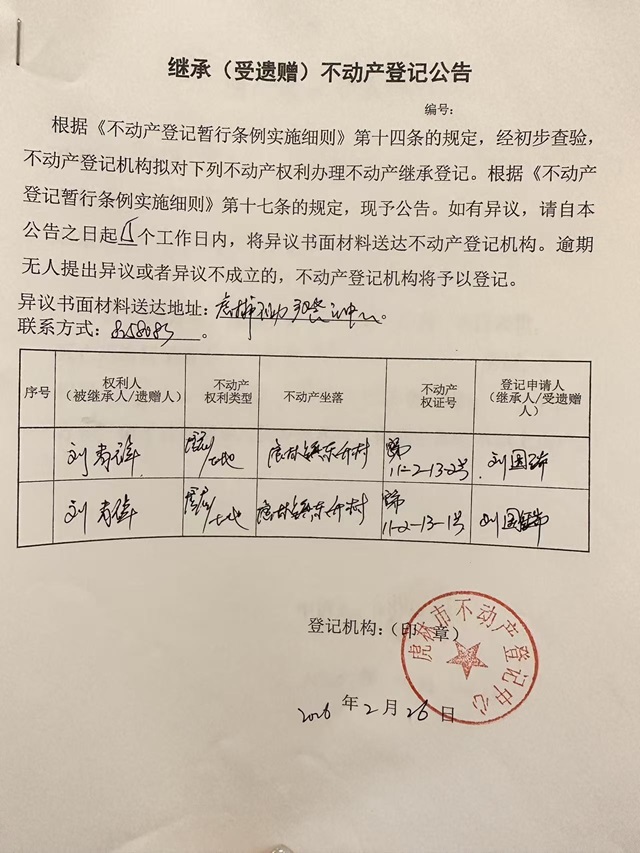 继承（受遗赠）不动产登记公告
编号：
根据《不动产登记暂行条例实施细则》第十四条的规定，经初步查验，
不动产登记机构拟对下列不动产权利办理不动产继承登记。根据《不动产
登记暂行条例实施细则》第十七条的规定，现予公告。如有异议，请自本
公告之日起 个工作日内，将异议书面材料送达不动产登记机构。逾期
无人提出异议或者异议不成立的，不动产登记机构将予以登记。
异议书面材料送达地址：虎林 登 中心。
联系方式： 。
序号
权利人
（被继承人/遗赠人）
不动产
权利类型
不动产坐落
不动产
权证号
登记申请人
（继承人/受遗赠
人）
刘 /土地 虎林镇东 村 11-2-13-2号 刘国
刘 /土地 虎林镇东 村 11-2-13-1号 刘国
登记机构：（印 章）
虎林市不动产登记中心
2026 年 2 月 26 日